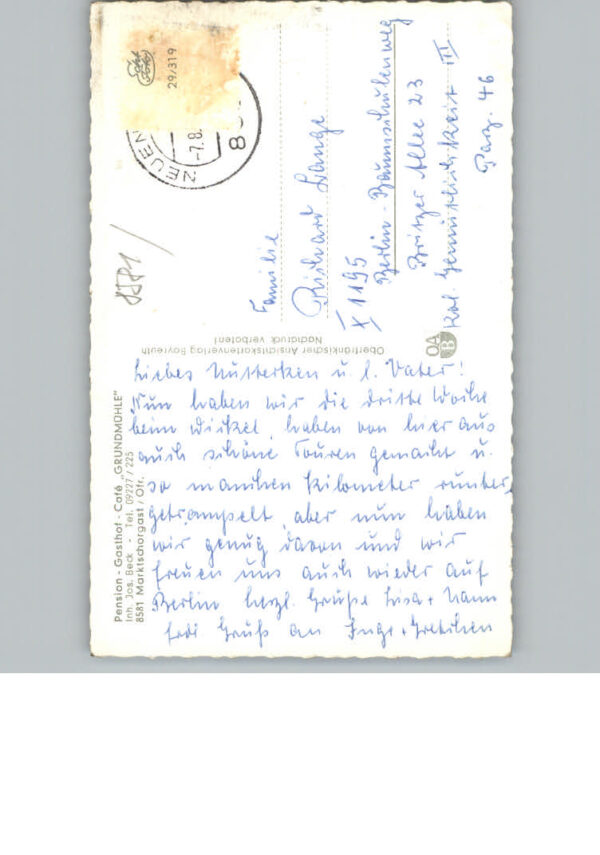 Pension - Gasthof - Café „GRUNDMÜHLE"
Inh. Jos. Beck - Tel. 09227 / 225
8581 Marktschorgast / Ofr.
Liebes Mutterken u l. Vater!
Nun haben wir die dritte Woche
beim Wickel, haben von hier aus
auch schöne Touren gemacht u.
so manchen Kilometer runter
getrampelt, aber nun haben
wir genug davon und wir
freuen uns auch wieder auf
Berlin herzl. Grüße Lisa + Hann
Gruß an Inge + Gretchen
Oberfränkischer Ansichtskartenverlag Bayreuth
Nachdruck verboten!
OA
B
29/319
NEUEN
-7.8.
Familie
Richard Lange
X 1195
Berlin - Baumschulenweg
Britzer Allee 23
Kol. Gemütlichkeit III
Parz. 46